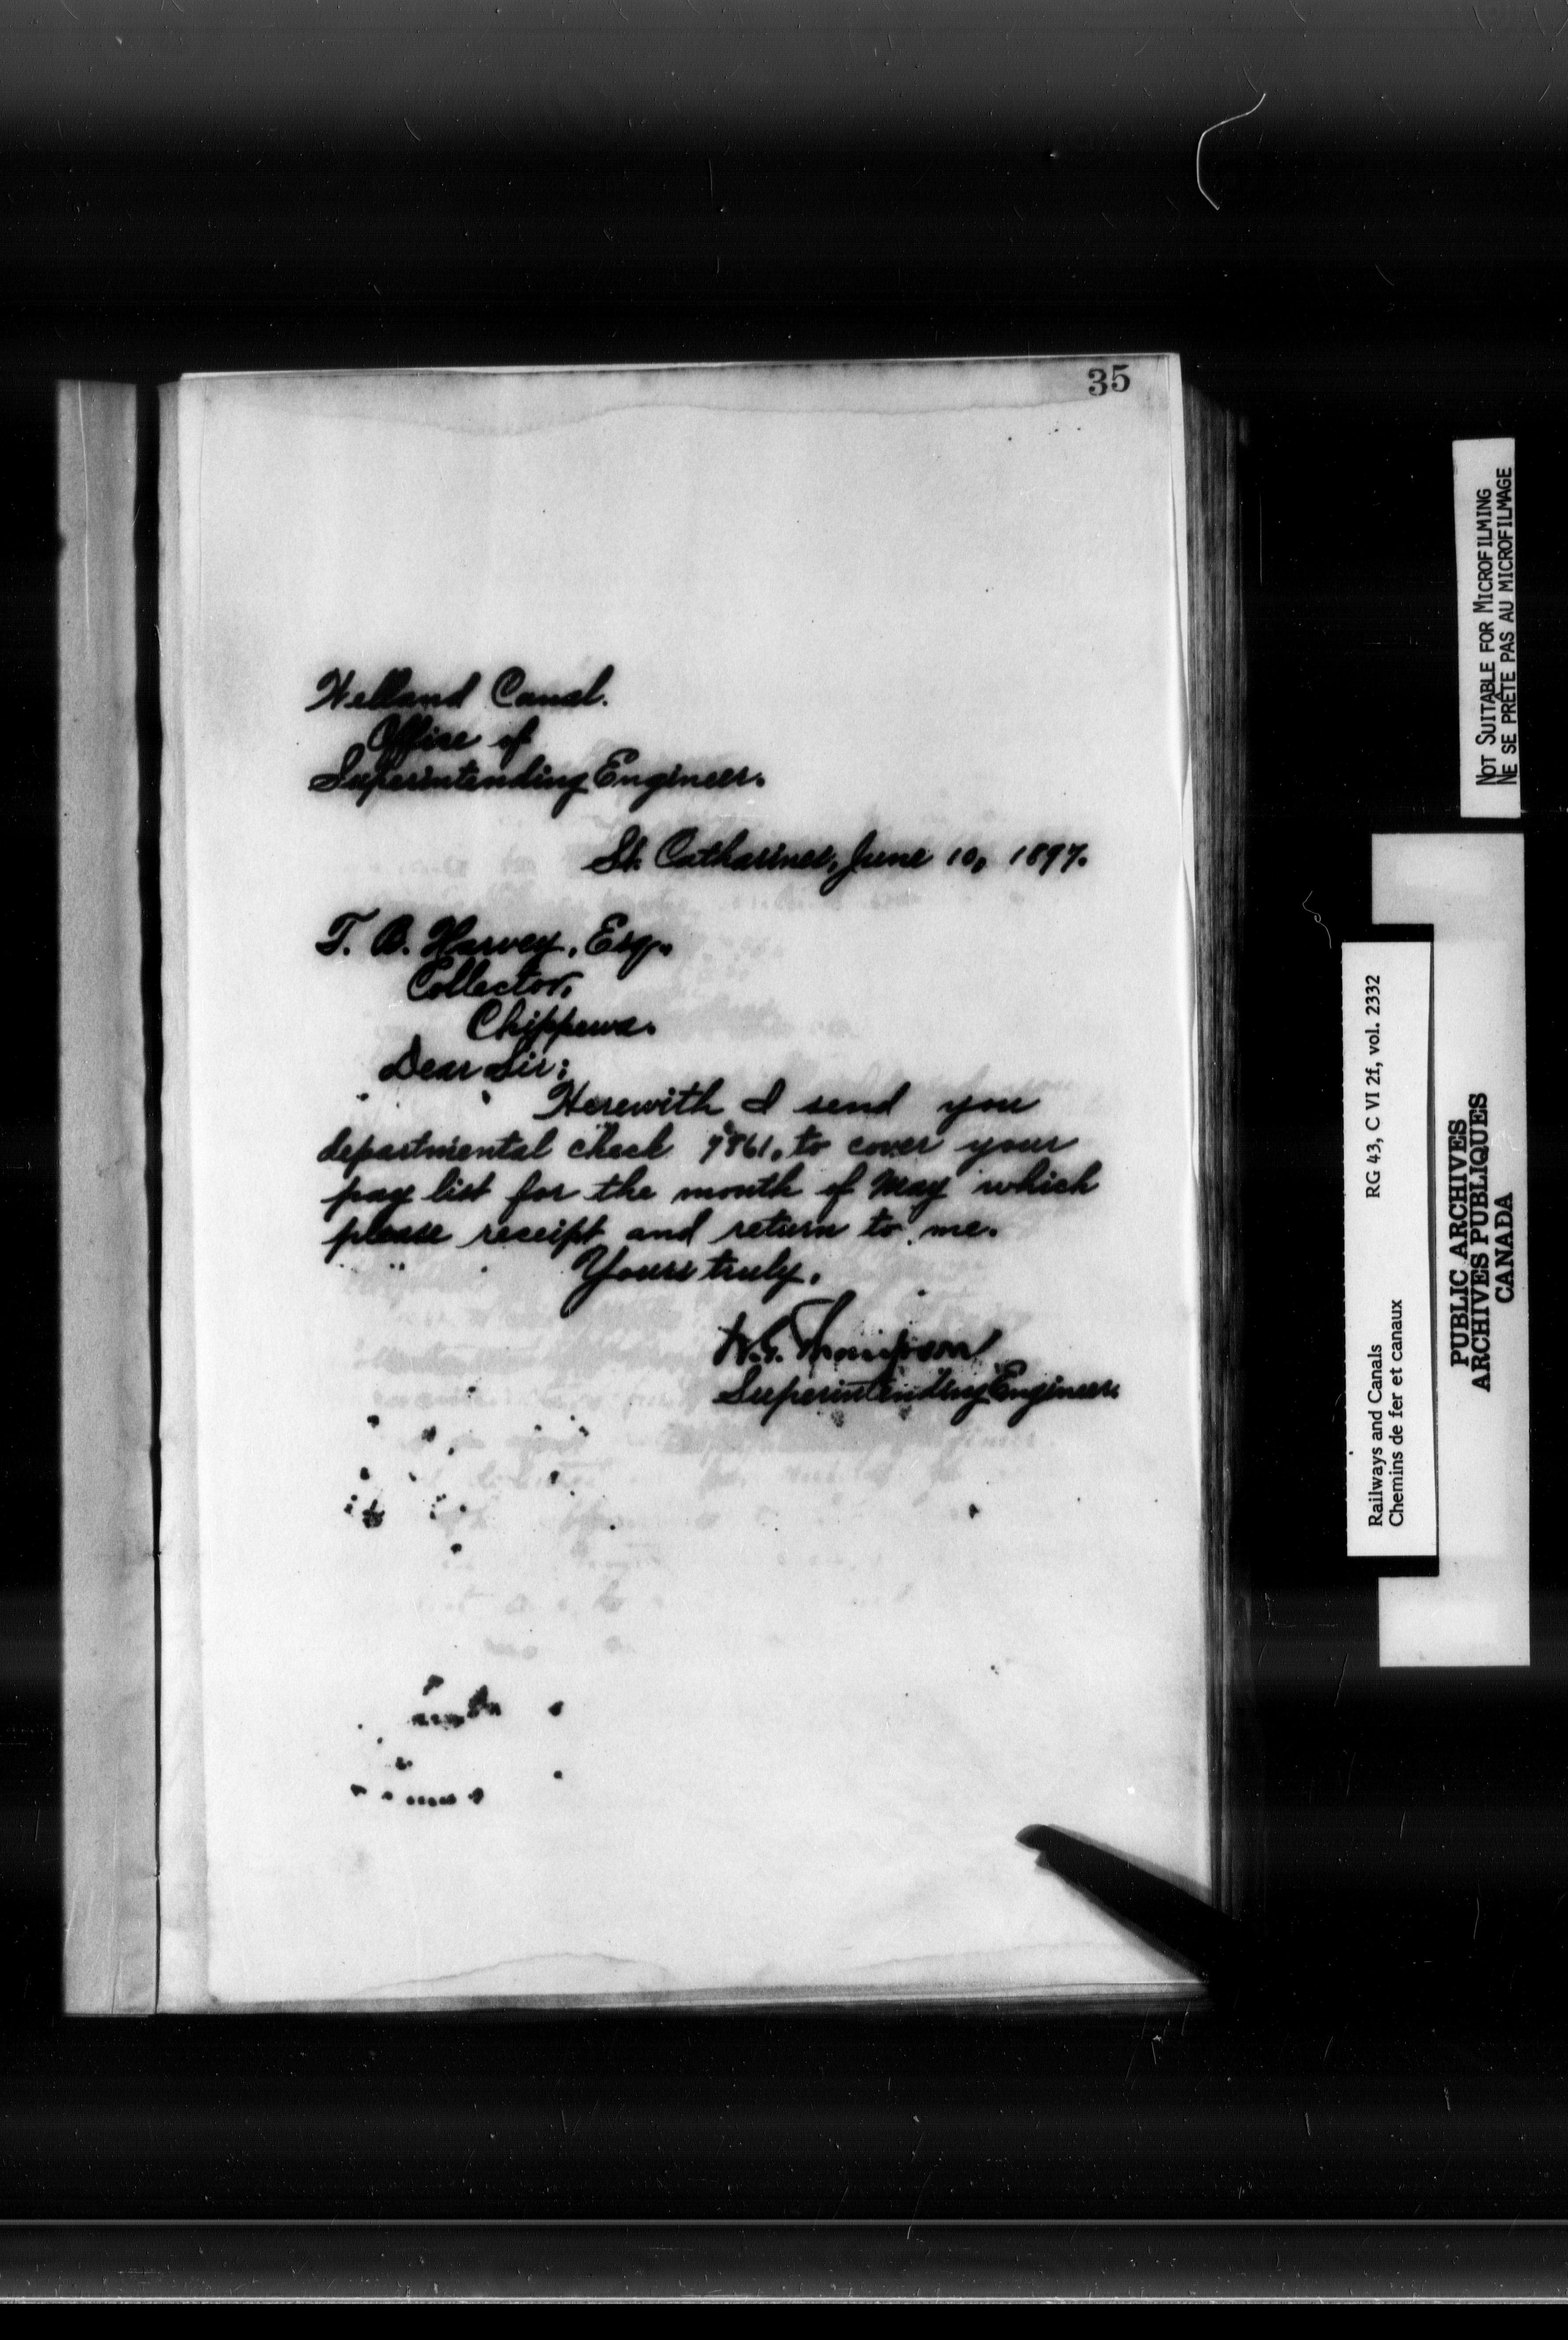 35
Welland Canal.
Office of
Superintending Engineer.
St. Catharines, June 10, 1897.
T. B. Harvey, Esq.
Collector,
Chippewa.
Dear Sir:
Herewith I send you
departmental check 9861, to cover your
pay list for the month of May which
please receipt and return to me.
Yours truly,
W. G. Thompson
Superintending Engineer.
NOT SUITABLE FOR MICROFILMING
NE SE PRÊTE PAS AU MICROFILMAGE
Railways and Canals RG 43, C VI 2f, vol. 2332
Chemins de fer et canaux
PUBLIC ARCHIVES
ARCHIVES PUBLIQUES
CANADA